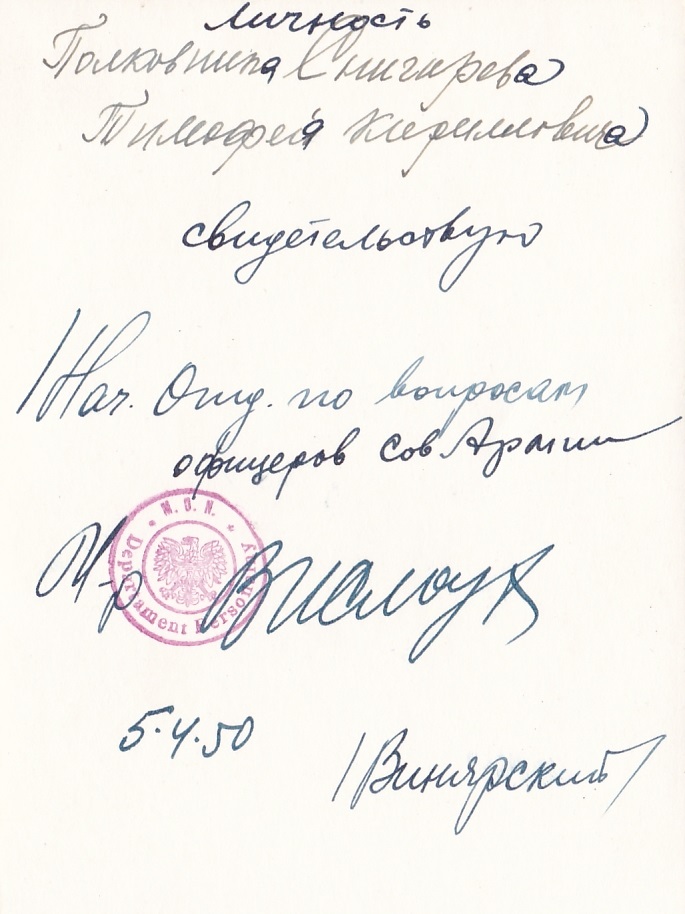 личность
Полковника Снигирева
Тимофея Кирилловича
свидетельствую
/Нач. Отд. по вопросам
офицеров Сов Армии
М-р
M.O.N.
Departament Personalny
5.4.50
/Винярский/